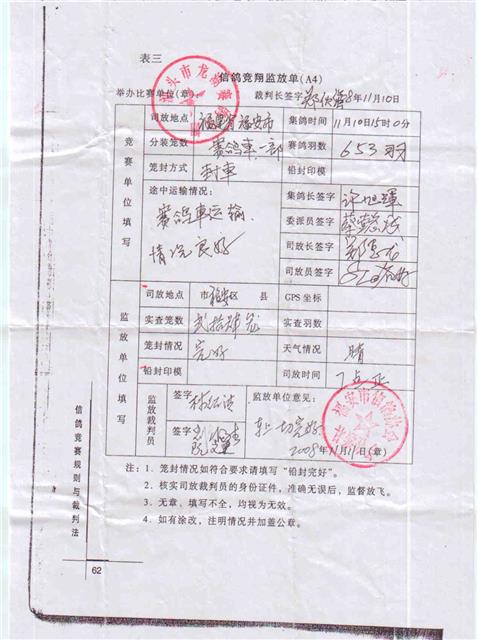 表三
信鸽竞翔监放单(A4)
举办比赛单位(章): 裁判长签字 8年11月10日
竞赛单位填写
司放地点 福建省福安市 集鸽时间 11月10日15时0分
分装笼数 赛鸽车一部 赛鸽羽数 653羽
笼封方式 封车 铅封印模
途中运输情况: 集鸽长签字
赛鸽车运输、 委派员签字
情况良好 司放长签字
司放员签字
监放单位填写
司放地点 市福安区 县 GPS坐标
实查笼数 实查羽数
笼封情况 完好 天气情况 晴
铅封印模 司放时间 7点正
监放裁判员 签字 监放单位意见:
签字 一切完好
2008年11月11日(章)
注:1、笼封情况如符合要求请填写“铅封完好”。
2、核实司放裁判员的身份证件,准确无误后,监督放飞。
3、无章、填写不全,均视为无效。
4、如有涂改,注明情况并加盖公章。
信鸽竞赛规则与裁判法
62